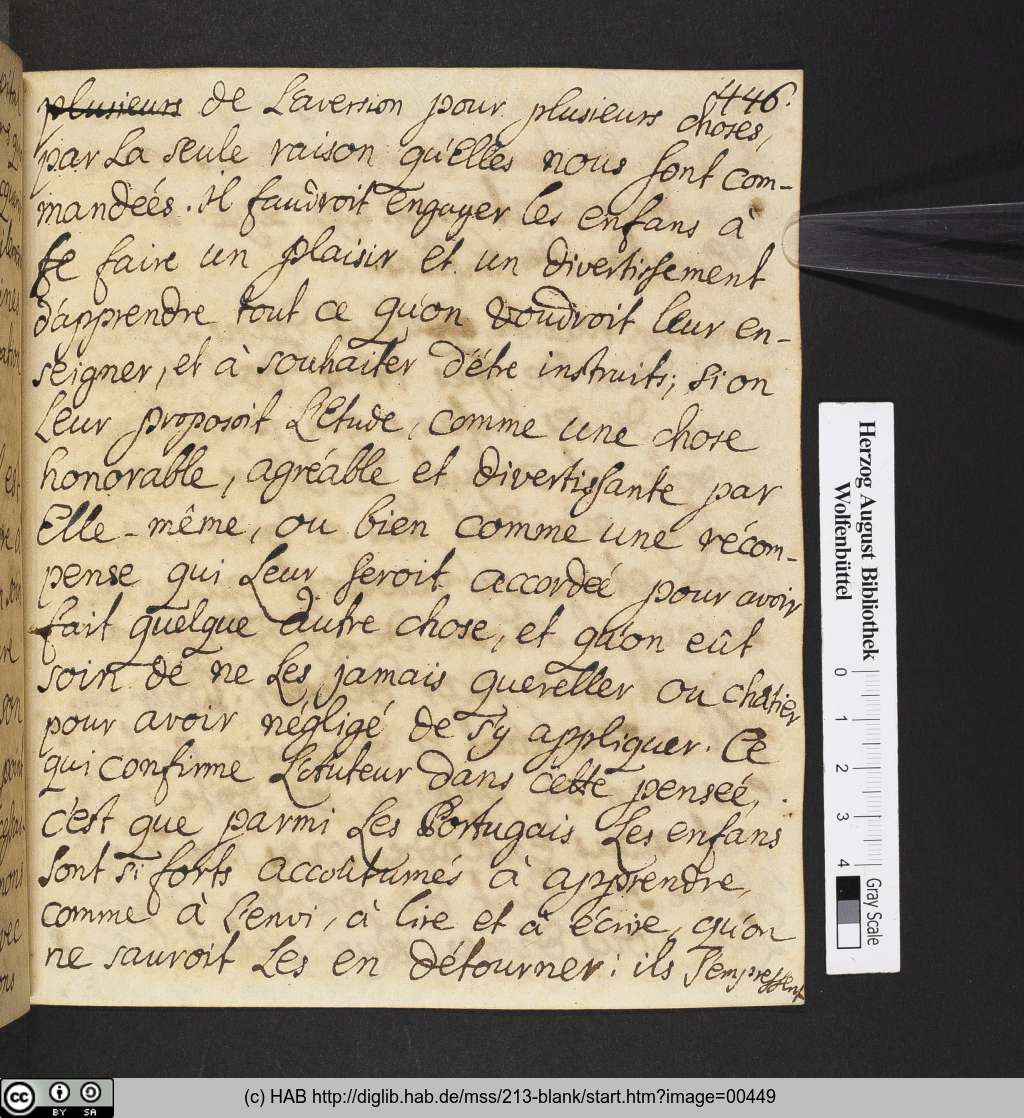 446.
plusieurs de L'aversion pour plusieurs choses,
par La seule raison qu'Elles nous sont com-
mandeés. il faudroit engager les enfans à
se faire un plaisir et un divertissement
d'apprendre tout ce qu'on voudroit leur en-
seigner, et à souhaiter d'étre instruits; si on
Leur proposoit L'Etude, comme une chose
honorable, agréable et divertissante par
Elle-même, ou bien comme une récom-
pense qui Leur seroit accordeé pour avoir
fait quelque autre chose, et qu'on eût
soin de ne Les jamais quereller ou chatier
pour avoir négligé de s'y appliquer. Ce
qui confirme L'Auteur dans cette penseé,
c'est que parmi Les Portugais Les enfans
sont si forts accoûtumés à apprendre,
comme à L'envi, à lire et à écrire, qu'on
ne sauroit Les en détourner: ils s'empressent
Herzog August Bibliothek
Wolfenbüttel
0 1 2 3 4
Gray Scale
cc BY SA
(c) HAB http://diglib.hab.de/mss/213-blank/start.htm?image=00449